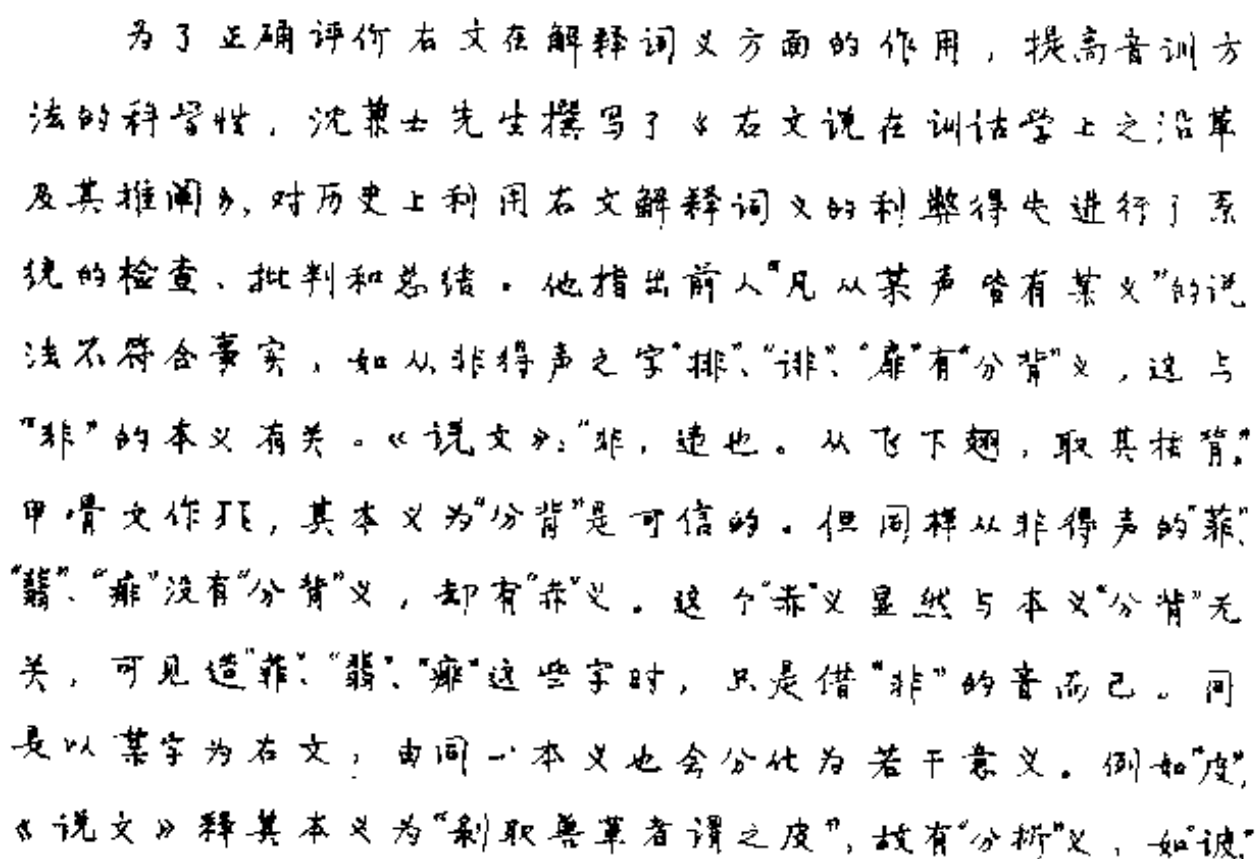 为了正确评价右文在解释词义方面的作用，提高音训方
法的科学性，沈兼士先生撰写了《右文说在训诂学上之沿革
及其推阐》，对历史上利用右文解释词义的利弊得失进行了系
统的检查、批判和总结。他指出前人“凡从某声皆有某义”的说
法不符合事实，如从非得声之字“排”、“诽”、“扉”有“分背”义，这与
“非”的本义有关。《说文》：“非，违也。从飞下翅，取其相背。”
甲骨文作，其本义为“分背”是可信的。但同样从非得声的“菲”、
“翡”、“痱”没有“分背”义，却有“赤”义。这个“赤”义显然与本义“分背”无
关，可见造“菲”、“翡”、“痱”这些字时，只是借“非”的音而已。同
是以某字为右文，由同一本义也会分化为若干意义。例如“皮”，
《说文》释其本义为“剥取兽革者谓之皮”，故有“分析”义，如“诐”